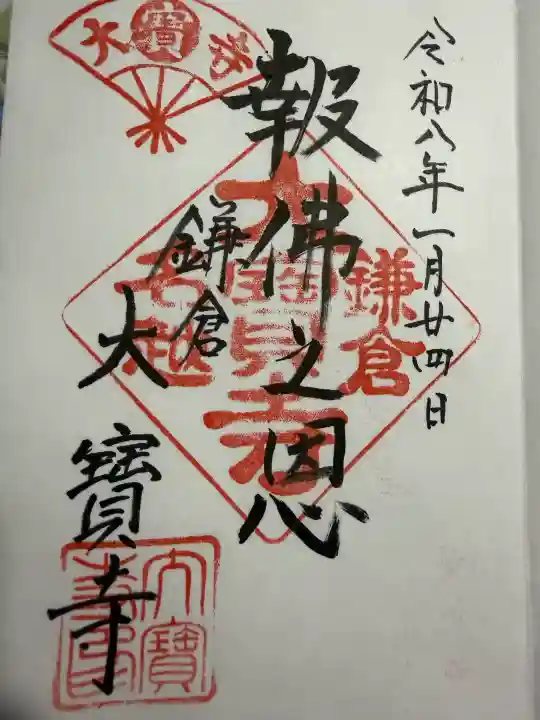 令和八年一月廿四日
報佛之恩
鎌倉
大寶寺
鎌倉
大寶寺
名越
大寶寺
大寶